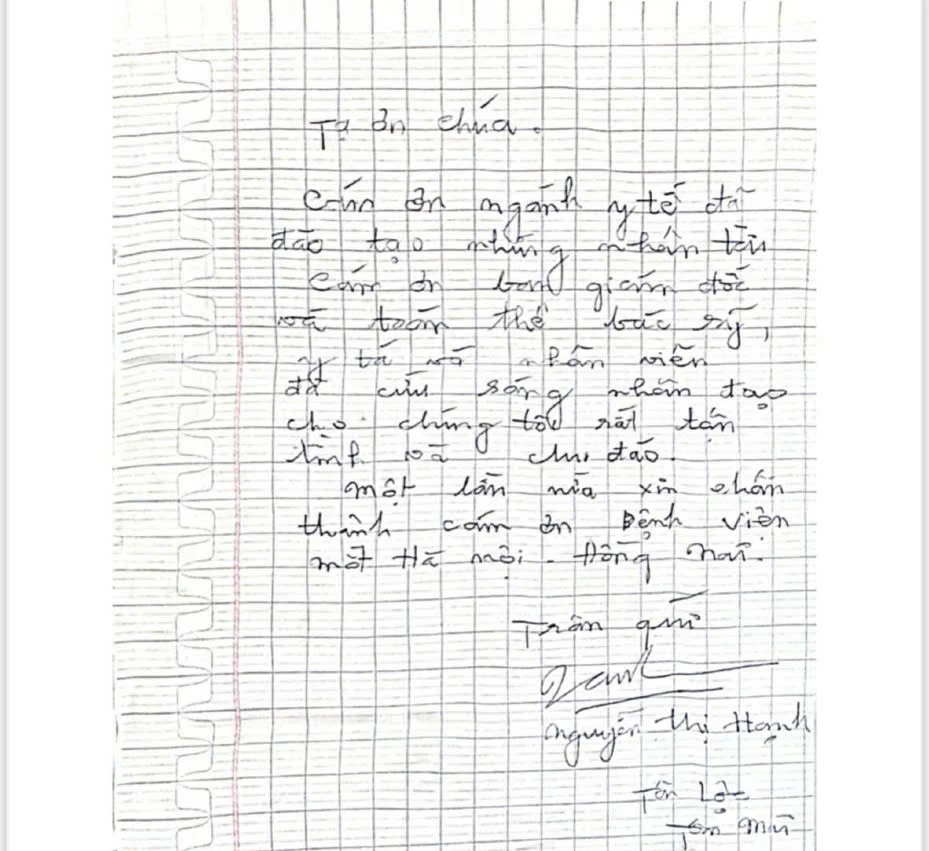 Tạ ơn chúa.
Cám ơn ngành y tế đã
đào tạo những nhân tài
Cám ơn ban giám đốc
và toàn thể bác sỹ,
y tá và nhân viên
đã cứu sống nhân đạo
cho chúng tôi rất tận
tình và chu đáo.
một lần nữa xin chân
thành cám ơn Bệnh viện
mắt Hà nội - Đồng Nai.
Trân quí
Hạnh
Nguyễn Thị Hạnh
Tân
Tân Mai